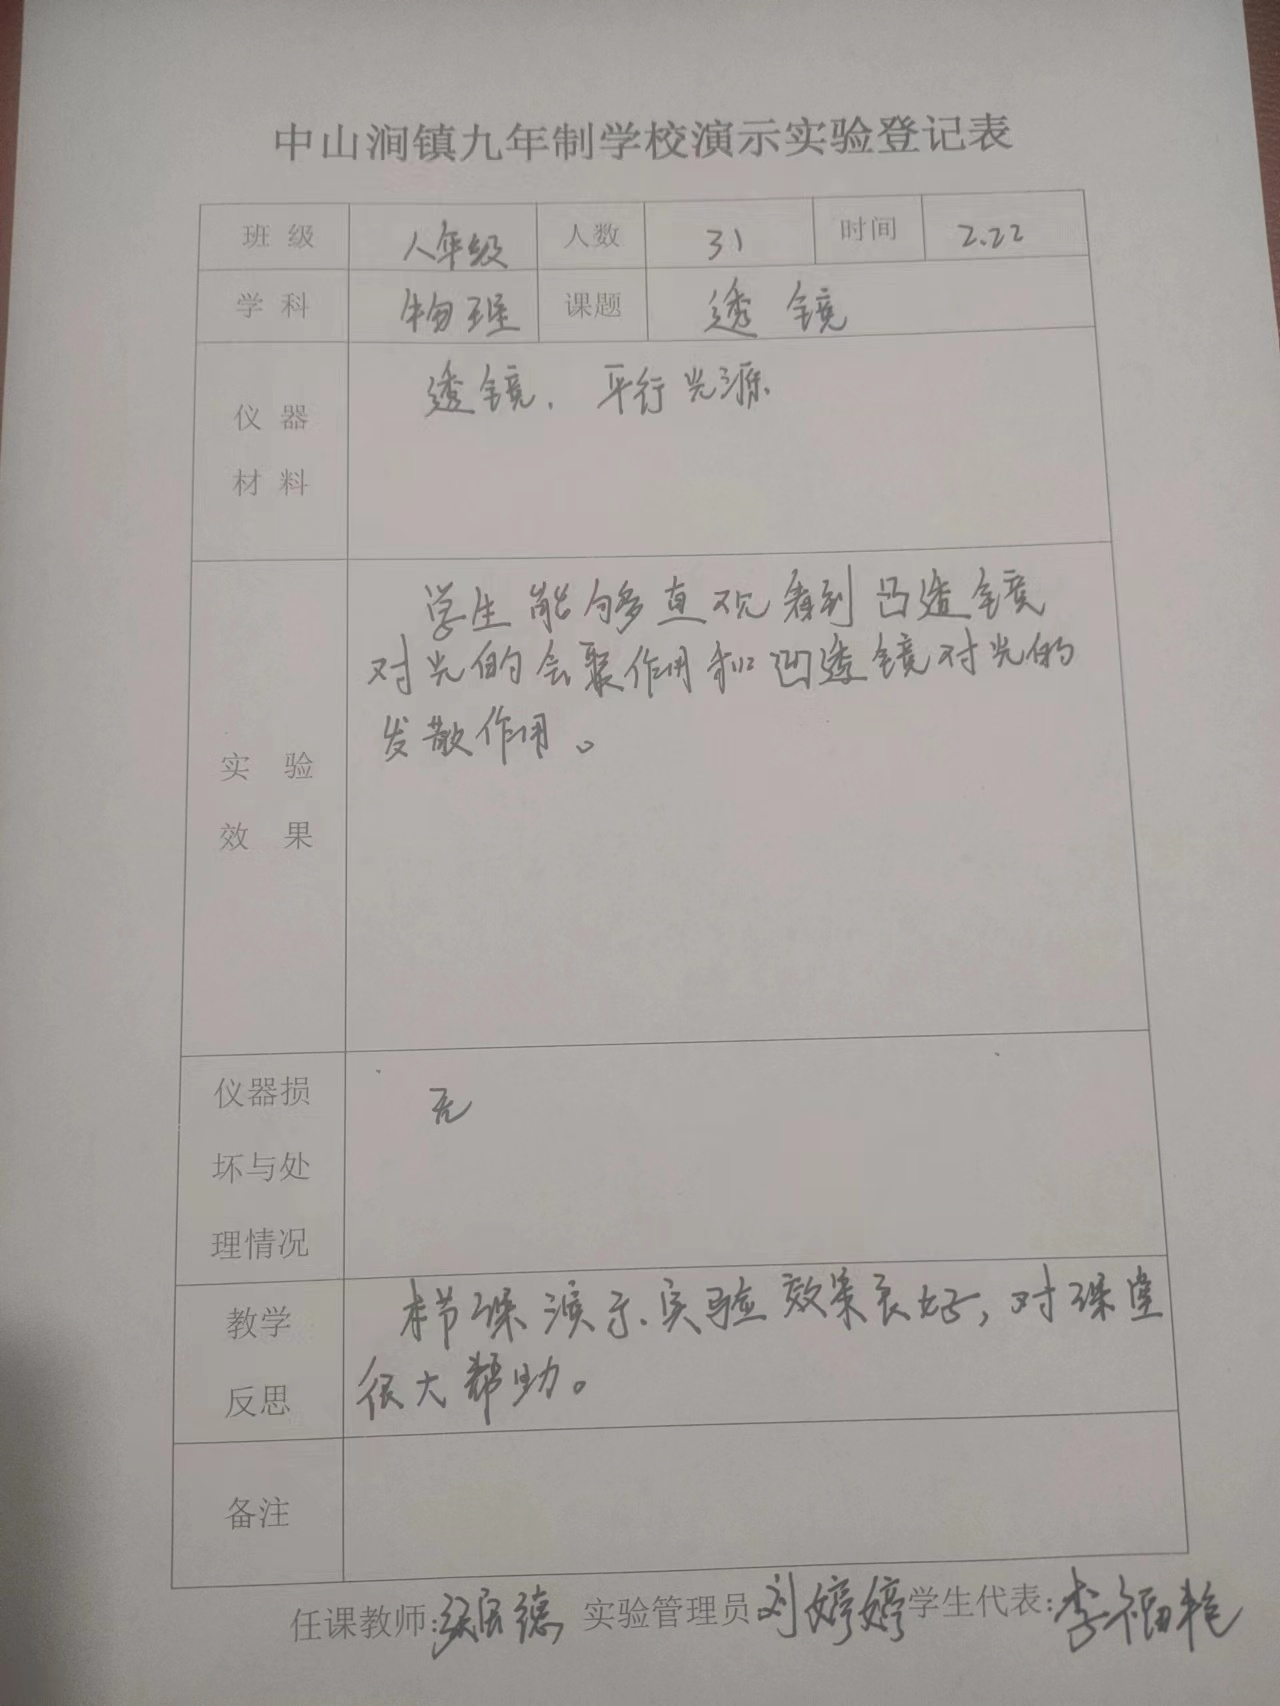 中山涧镇九年制学校演示实验登记表
班 级 八年级 人数 31 时间 2.22
学 科 物理 课题 透镜
仪 器
材 料
透镜. 平行光源.
实 验
效 果
学生能够直观看到凸透镜
对光的会聚作用和凹透镜对光的
发散作用。
仪器损
坏与处
理情况
无
教学
反思
本节课演示实验效果良好,对课堂
很大帮助。
备注
任课教师: 实验管理员 刘婷婷 学生代表:李福艳